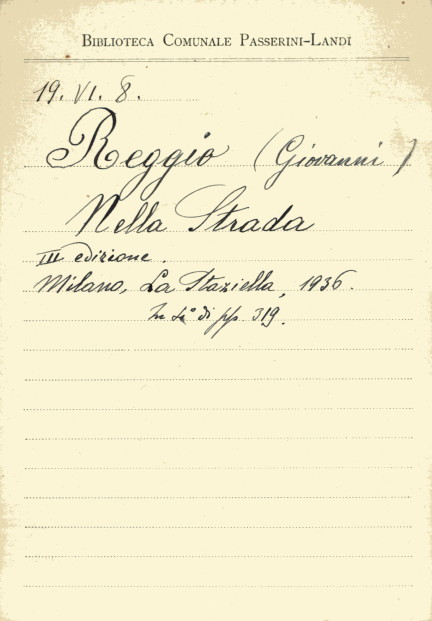 BIBLIOTECA COMUNALE PASSERINI-LANDI
19. VI. 8.
Reggio (Giovanni)
Nella Strada
III edizione.
Milano, La Staziella, 1936.
In 4° di pp. 319.